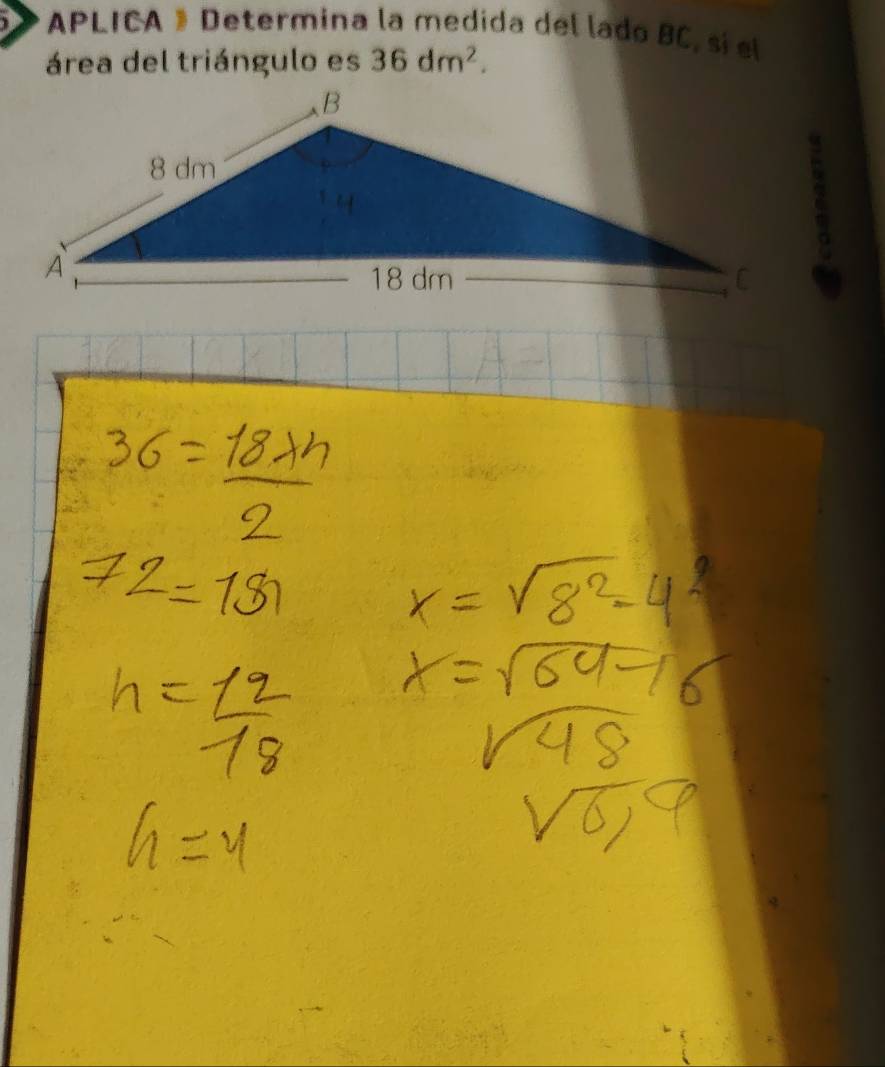 5 APLICA Determina la medida del lado BC, si el
área del triángulo es 36 dm².
B
8 dm
4
A
18 dm
C
36 = 18 x h
2
72 = 18h
h = 12
18
h = 4
x = √8² - 4²
x = √64 - 16
√48
√6,9